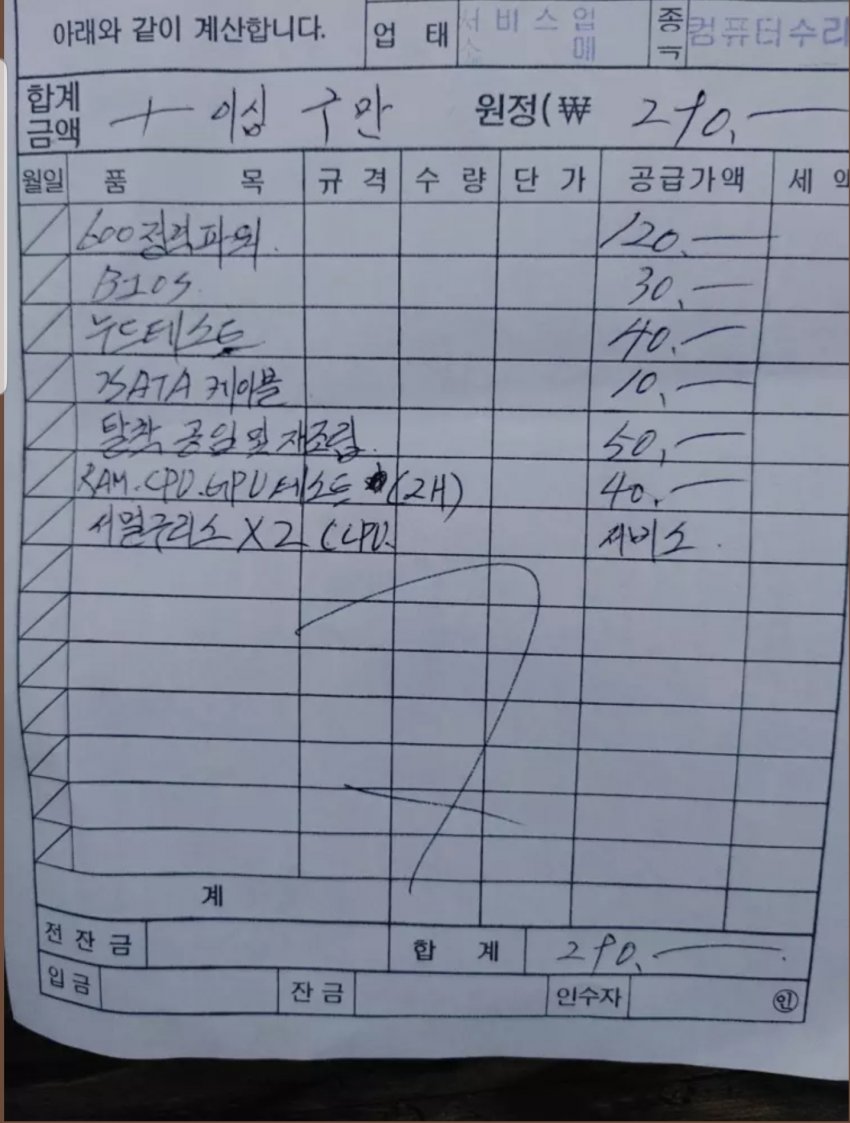 아래와 같이 계산합니다. 업 태 서비스업 소 매 종 컴퓨터수리
합계금액 十 이십 구만 원정(₩ 290,—
월일 품 목 규 격 수 량 단 가 공급가액 세 액
600 정격파워. 120,—
BIOS. 30,—
누드테스트 40,—
SATA 케이블 10,—
탈착 공임 및 재조립. 50,—
RAM.CPU.GPU 테스트 (2H) 40,—
서멀구리스 X2 (CPU. 서비스.
계
전잔금 합 계 290,—
입금 잔금 인수자 ㊞